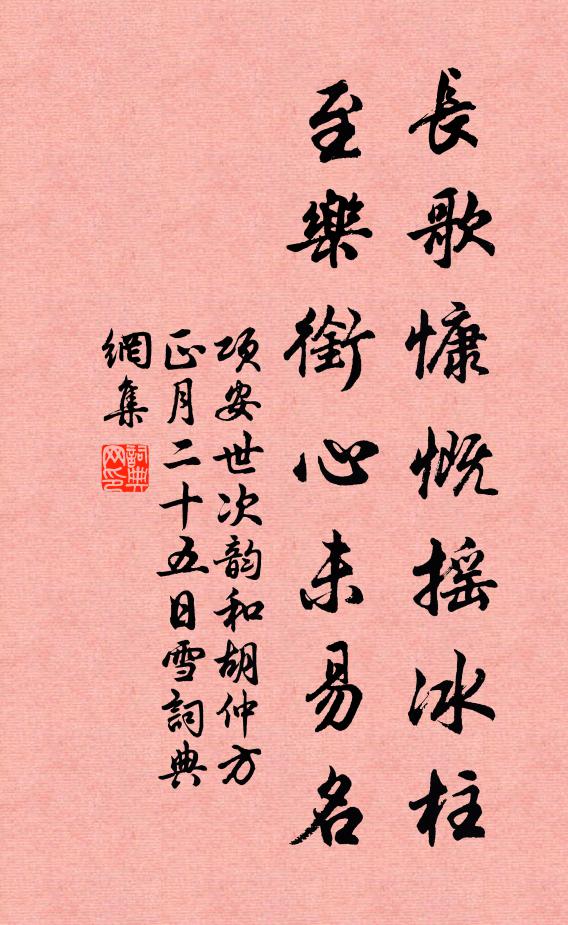 長歌慷慨摇冰柱
至樂銜心未易名
项安世次韵和胡仲方
正月二十五日雪詞典
網集
詞典
网印